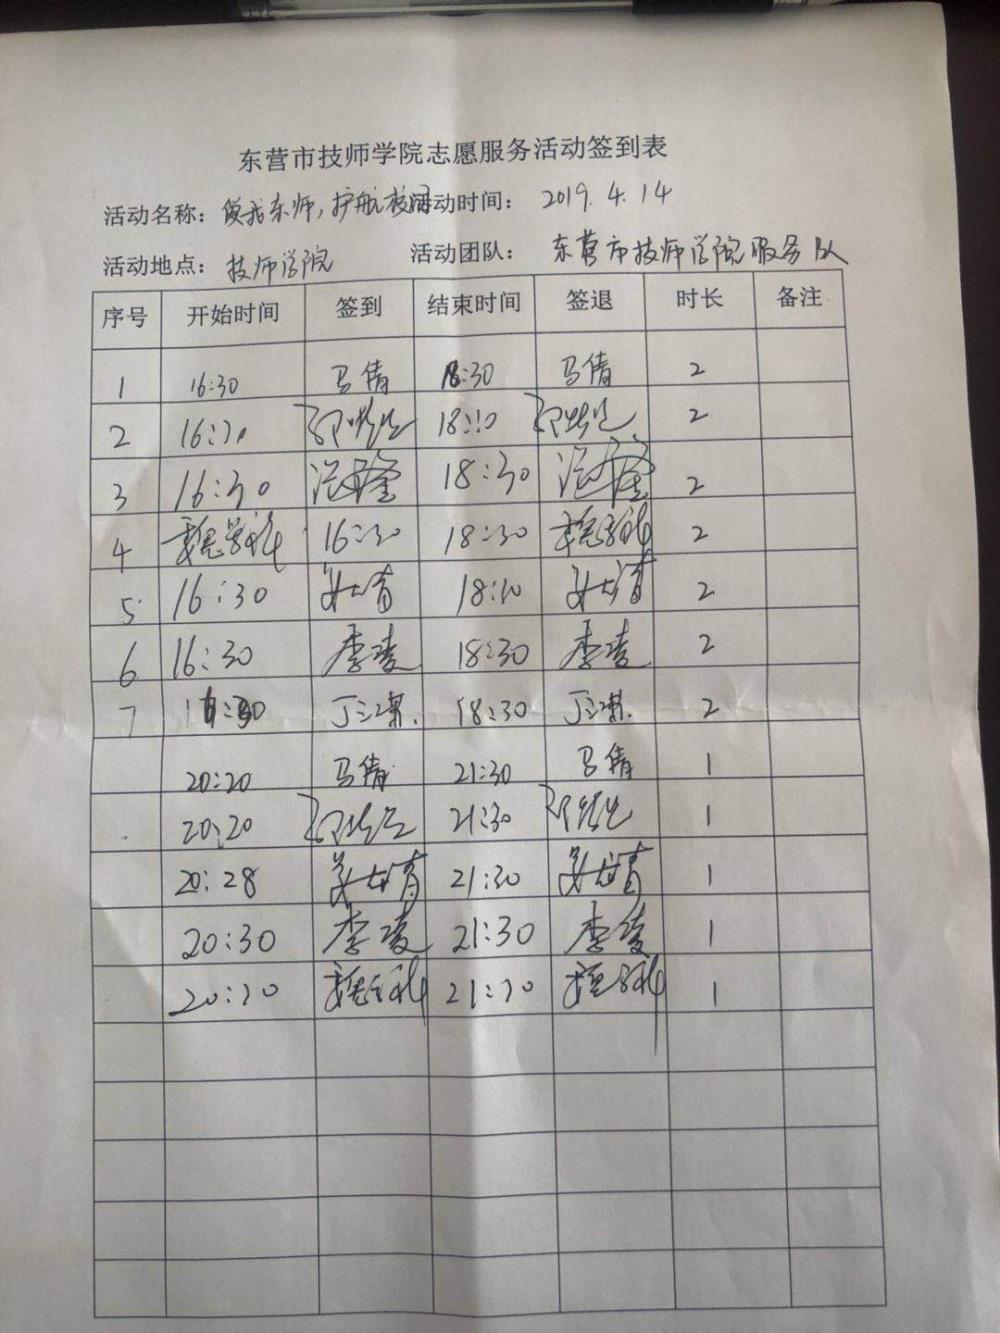 东营市技师学院志愿服务活动签到表
活动名称：爱我东师，护航校园 活动时间： 2019.4.14
活动地点：技师学院 活动团队： 东营市技师学院服务队
序号 开始时间 签到 结束时间 签退 时长 备注
1 16:30 马倩 18:30 马倩 2
2 16:30 18:30 2
3 16:30 18:30 2
4 16:30 18:30 2
5 16:30 18:30 2
6 16:30 李凌 18:30 李凌 2
7 16:30 18:30 2
20:20 马倩 21:30 马倩 1
20:20 21:30 1
20:28 21:30 1
20:30 李凌 21:30 李凌 1
20:30 21:30 1